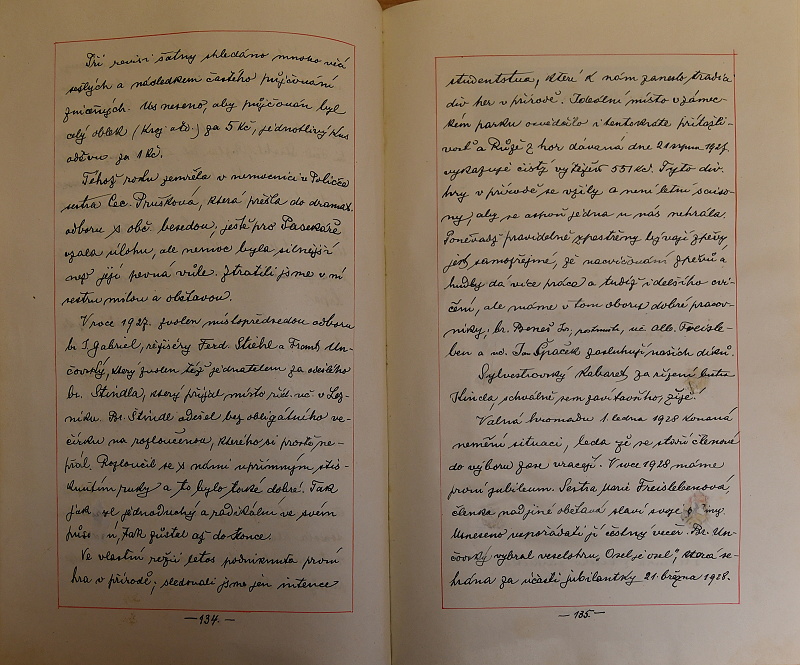 Při revisi šatny shledáno mnoho věcí
sešlých a následkem častého půjčování
zničených. Usneseno, aby půjčován byl
celý oblek (kroj atd.) za 5 Kč, jednotlivý kus
oděvu za 1 Kč.
Téhož roku zemřela v nemocnici v Poličce
sestra Cec. Prušková, která přešla do dramat.
odboru s obč. besedou, ještě pro Pasekáře
vzala úlohu, ale nemoc byla silnější
než její pevná vůle. Ztratili jsme v ní
sestru milou a obětavou.
V roce 1927. zvolen místopředsedou odboru
br. J. Gabriel, režiséry Ferd. Stiehl a Frant. Un-
čovský, který zvolen též jednatelem za odešlého
br. Štindla, který přijal místo říd. uč. v
níku. Br. Štindl odešel bez obligátního ve-
čírku na rozloučenou, kterého si prostě ne-
přál. Rozloučil se s námi upřímným stis-
knutím ruky a to bylo také dobré. Tak
jak žil jednoduchý a radikální ve svém
tak zůstal až do konce.
Ve vlastní režii letos podniknuta první
hra v přírodě; sledovali jsme jen intence
—134.—
studentstva, které k nám zaneslo tradici
div. her v přírodě. Ideální místo v zámec-
kém parku osvědčilo i tentokráte přitažli-
vost a Růže z hor dávaná dne 21 srpna 1927
vykazuje čistý výtěžek 551 Kč. Tyto div.
hry v přírodě se vžily a není letní saiso-
ny, aby se aspoň jedna u nás nehrála.
Poněvadž pravidelně zpestřeny bývají zpěvy,
jest samozřejmé, že nacvičování zpěvů a
hudby dá více práce a tudíž i delšího cvi-
čení, ale máme v tom oboru dobré pracov-
níky, br. Beneš uč. Alb. Freisle-
ben a Jan Špaček zasluhují našich díků.
Sylvestrovský kabaret, za řízení bratra
Kindla, schválně sem zavítavšího, žije!
Valná hromada 1. ledna 1928 konaná
nemění situaci, leda že se staří členové
do výboru zase vracejí. V roce 1928 máme
první jubileum. Sestra Marie Freislebenová,
členka nad jiné obětavá slaví svoje
Usneseno uspořádati jí čestný večer. Br. Un-
čovský vybral veselohru „Osel je osel“, která se-
hrána za účasti jubilantky 21. března 1928.
—135.—